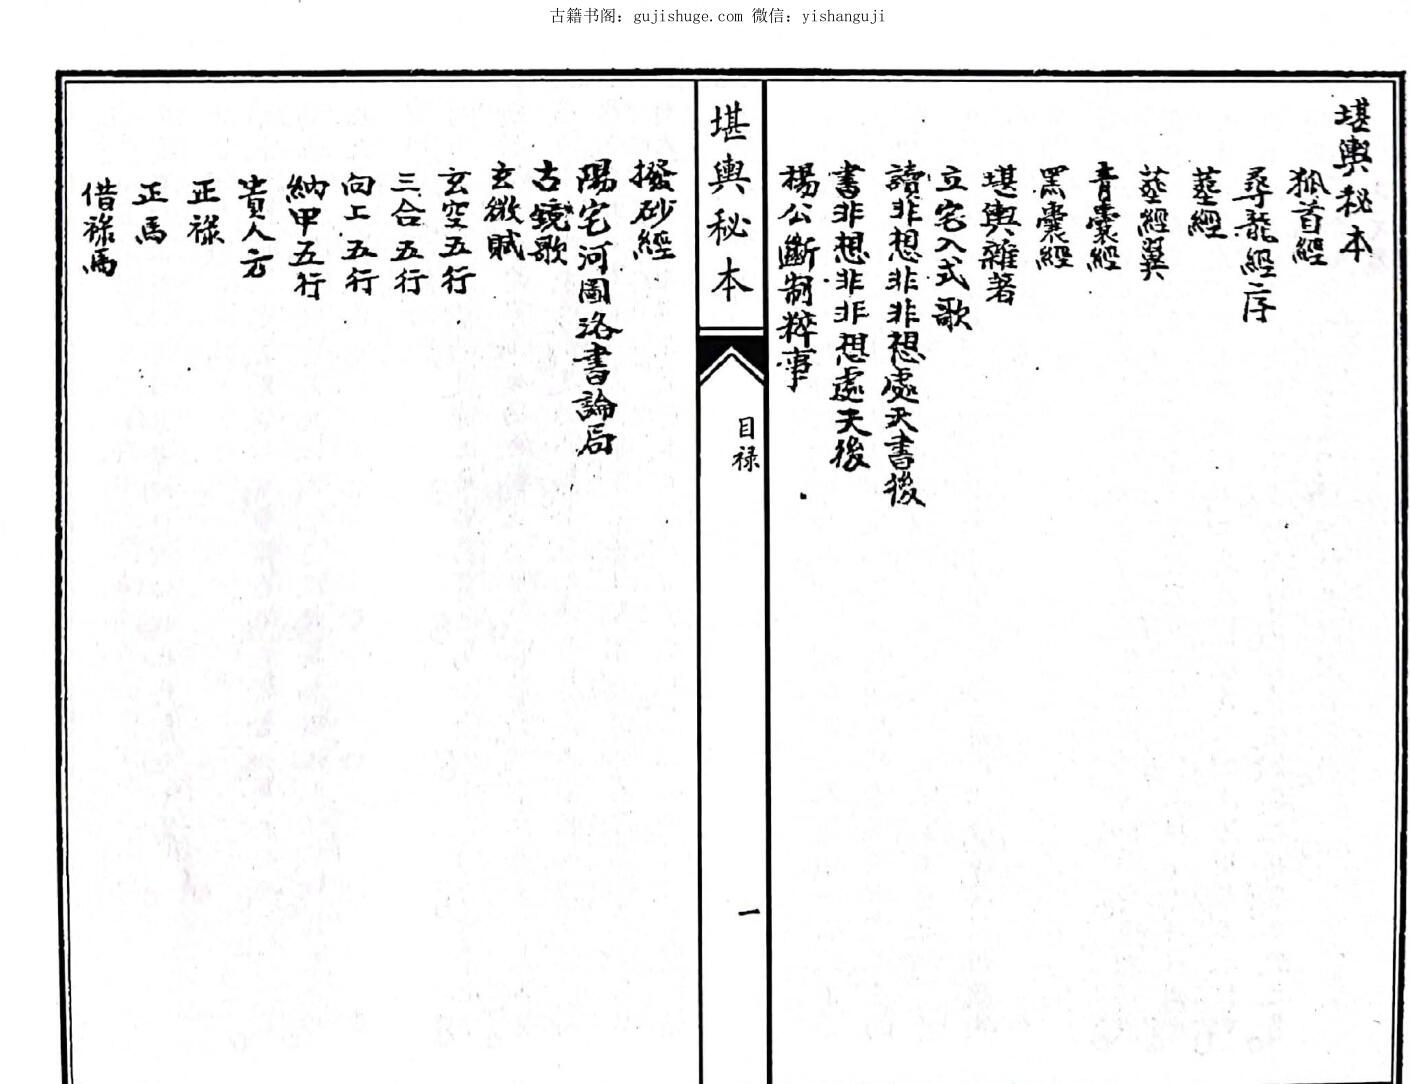 古籍书阁：gujishuge.com 微信：yishanguji
堪輿秘本
狐首經
尋龍經序
葬經
葬經翼
青囊經
黑囊經
堪輿雜著
立宅入式歌
讀非想非非想處天書後
書非想非非想處天後
楊公斷制粹事
堪輿秘本
目禄
一
撥砂經
陽宅河圖洛書論局
古鏡歌
玄微賦
玄空五行
三合五行
向上五行
納甲五行
貴人方
正禄
正馬
借禄馬